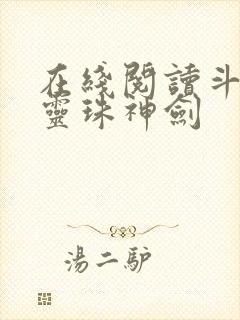 在綫閱讀斗
靈珠神劍
湯二驴